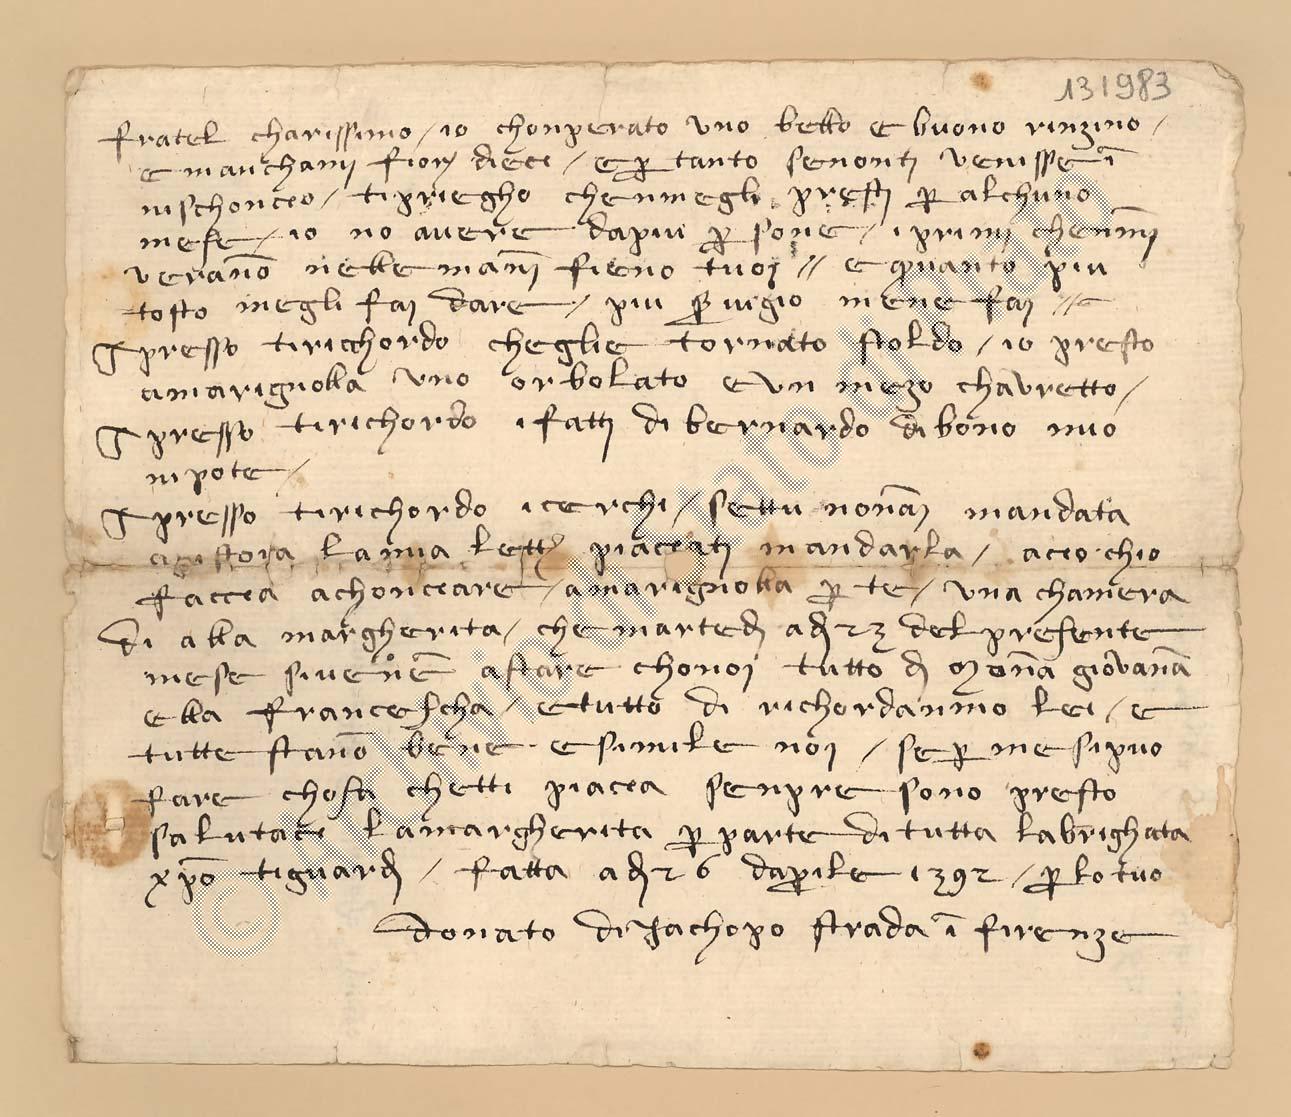 131983
fratel charissimo / io chonperato uno bello e buono rinzino /
e manchamj fiorj dieci / e per tanto se non tj venisse ĩ
nischoncio / ti priegho chenmegli presti per alchuno
mese / io no avere da piu persone / i primj chenmj
verãno nelle manj fieno tuoj // e quanto piu
tosto megli faj dare / piu servigio mene faj //
presso tirichordo cheglie tornato stoldo / io presto
amarignolla uno orbolato e un mezo chavretto /
presso tirichordo i fattj di bernardo di bono mio
nipote /
presso tirichordo i cerchi / settu nonãj mandata
a gistora la mia letta piacciatj mandarla / accio chio
faccia achonciare amarignolla per te / una chamera
di alla margherita / che martedj adj 23 del presente
mese si venne a stare chonoj tutto dj monã giovanã
ella francescha / e tutto di richordanmo lei / e
tutte stanõ bene e simile noj / se per me si puo
fare chosa chetti piaccia senpre sono presto
salutaci la margherita per parte di tutta la brighata
xpõ ti guardj / fatta adj 26 daprile 1392 / per lo tuo
donato di Jachopo strada ĩ firenze
© Archivio di Stato di Prato